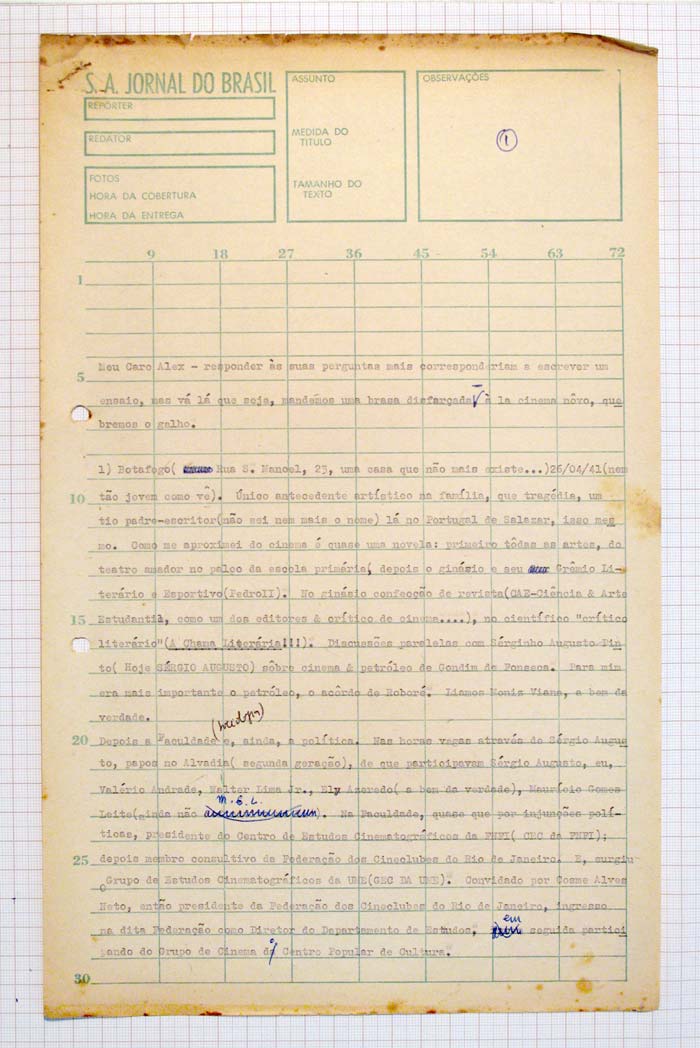 S. A. JORNAL DO BRASIL
REPÓRTER
REDATOR
FOTOS
HORA DA COBERTURA
HORA DA ENTREGA
ASSUNTO
MEDIDA DO
TITULO
TAMANHO DO
TEXTO
OBSERVAÇÕES
1
9 18 27 36 45 54 63 72
1
Meu Caro Alex - responder às suas perguntas mais corresponderiam a escrever um
5
ensaio, mas vá lá que seja, mandemos uma brasa disfarçada à la cinema nôvo, que
bremos o galho.
1) Botafogo( Rua S. Manoel, 23, uma casa que não mais existe...)26/04/41(nem
10
tão jovem como vê). Único antecedente artístico na família, que tragédia, um
tio padre-escritor(não sei nem mais o nome) lá no Portugal de Salazar, isso mes
mo. Como me aproximei do cinema é quase uma novela: primeiro tôdas as artes, do
teatro amador no palco da escola primária, depois o ginásio e seu Grêmio Li-
terário e Esportivo(PedroII). No ginásio confecção de revista(CAE-Ciência & Arte
15
Estudantil, como um dos editores & crítico de cinema....), no científico "crítico
literário"(A Chama Literária!!!). Discussões paralelas com Sérginho Augusto Pin
to( Hoje SÉRGIO AUGUSTO) sôbre cinema & petróleo de Gondim de Fonseca. Para mim
era mais importante o petróleo, o acôrdo de Roboré. Liamos Moniz Viana, a bem da
verdade.
20
Depois a Faculdade e, ainda, a política. Nas horas vagas através de Sérgio Augus
to, papos no Alvadia( segunda geração), de que participavam Sérgio Augusto, eu,
Valério Andrade, Walter Lima Jr., Ely Azeredo( a bem da verdade), Maurício Gomes
Leite(ainda não M.G.L.). Na Faculdade, quase que por injunções polí-
ticas, presidente do Centro de Estudos Cinematográficos da FNFI( CEC da FNFI);
25
depois membro consultivo da Federação dos Cineclubes do Rio de Janeiro. E, surgiu
o Grupo de Estudos Cinematográficos da UME(GEC DA UME). Convidado por Cosme Alves
Neto, então presidente da Federação dos Cineclubes do Rio de Janeiro, ingresso
na dita Federação como Diretor do Departamento de Estudos, em seguida partici
pando do Grupo de Cinema do Centro Popular de Cultura.
30